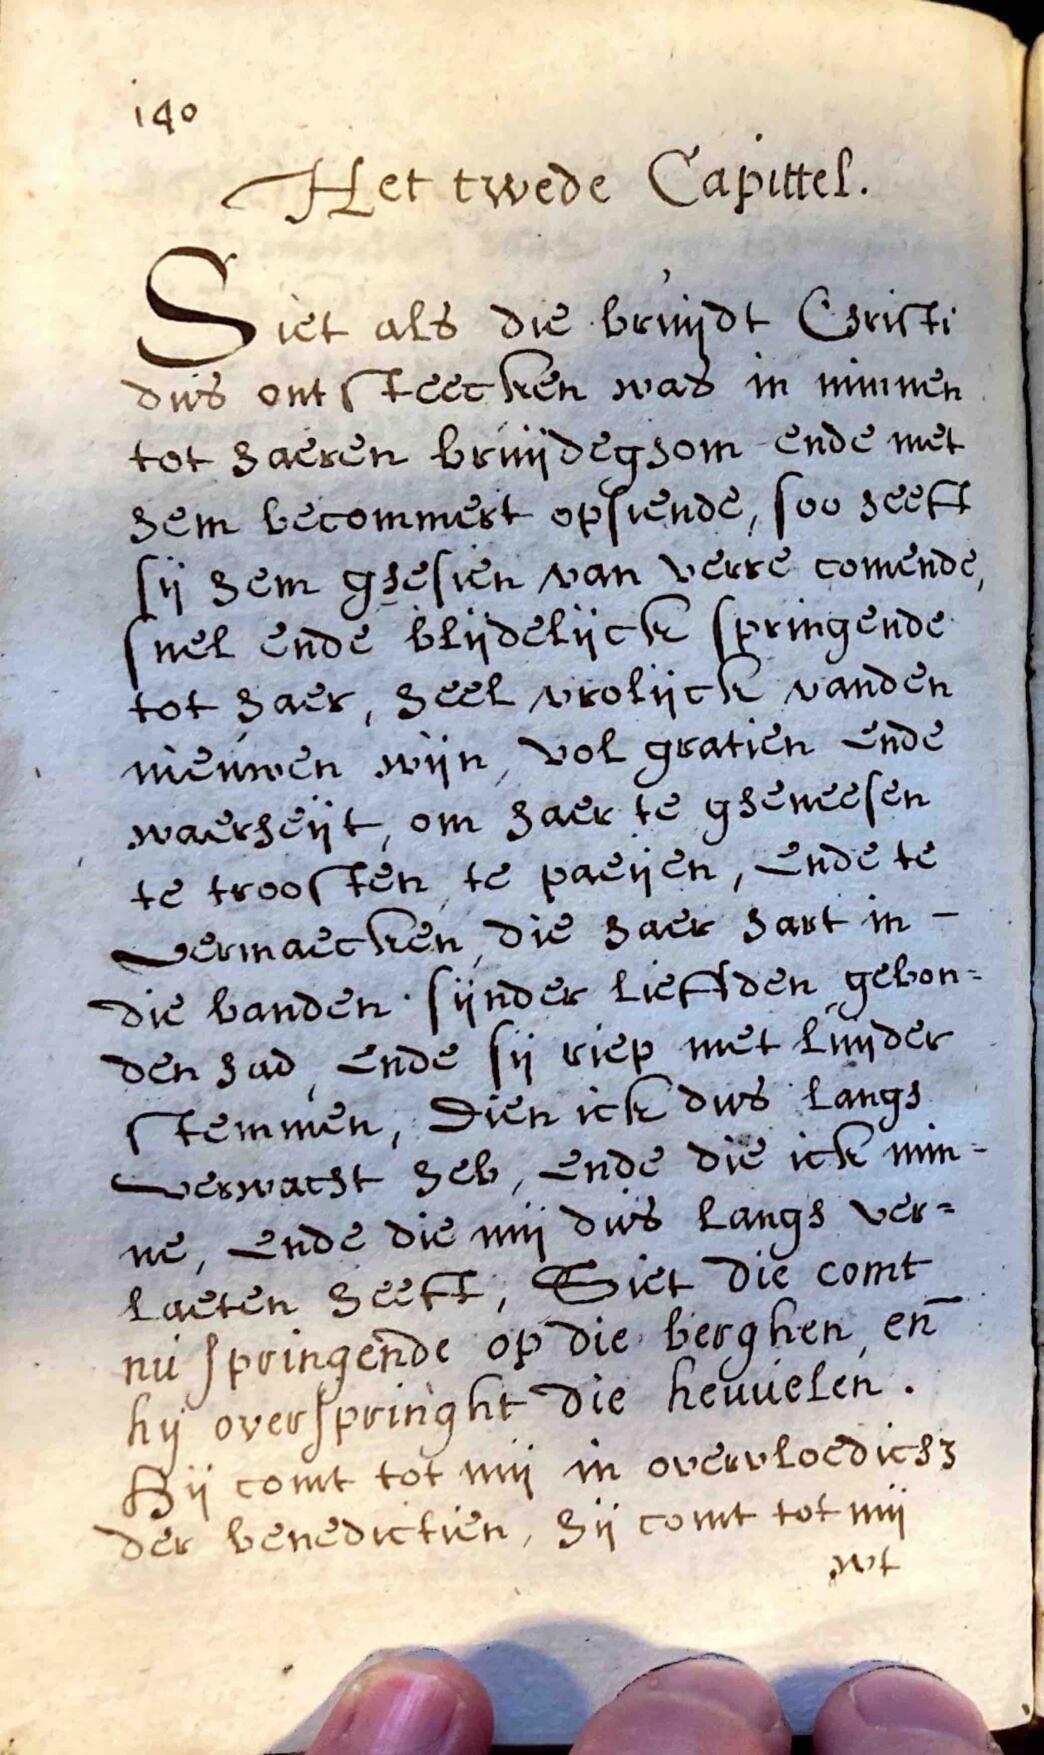 140
Het twede Capittel.
Siet als die bruijdt Christi
dus ontsteecken was in minnen
tot haeren bruijdeghom ende met
hem becommert opsiende, soo heeft
sij hem ghesien van verre comende,
snel ende blijdelijck springende
tot haer, heel vrolijck vanden
nieuwen wijn, vol gratien ende
waerheijt, om haer te gheneesen
te troosten, te paeijen, ende te
vermaecken, die haer hart in -
die banden sijnder lieffden gebon=
den had, ende sij riep met luijder
stemmen, Dien ick dus langh
verwacht heb, ende die ick min=
ne, ende die mij dus langh ver=
laeten heeft, Siet die comt
nu springende op die berghen, en̄
hij overspringht die heuuelen.
Hij comt tot mij in overvloedich3
der benedictien, hij comt tot mij
wt